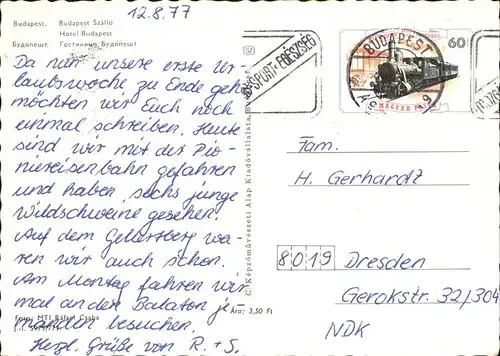 12.8.77
Budapest. Budapest Szálló
Hotel Budapest
Будапешт. Гостиница Будапешт
Da nun unsere erste Ur-
laubswoche zu Ende geht
möchten wir Euch noch
einmal schreiben. Heute
sind wir mit der Pio-
niereisenbahn gefahren
und haben sechs junge
Wildschweine gesehen.
Auf dem Gellertsberg wa-
ren wir auch schon.
Am Montag fahren wir
mal an den Balaton je-
manden besuchen.
Herzl. Grüße von R. + S.
Foto: MTI Bálint Csaba
Ára: 3,50 Ft
C Képzőművészeti Alap Kiadóvállalata, Budapest
SZ
SPORT EGÉSZSÉG
BUDAPEST
60
MAGYAR POSTA
Fam.
H. Gerhardt
8019 Dresden
Gerokstr. 32/304
NDK